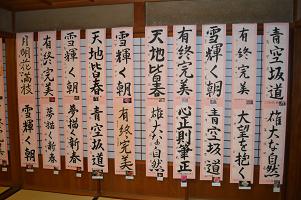 青空坂道
雄大な自然
有終完美
大望を抱く
雪輝く朝
青空坂道
有終完美
心正則筆正
天地皆春
雄大な自然
雪輝く朝
有終完美
天地皆春
青空坂道
有終完美
夢描く新春
有終完美
夢描く新春
月明花満枝
雪輝く朝